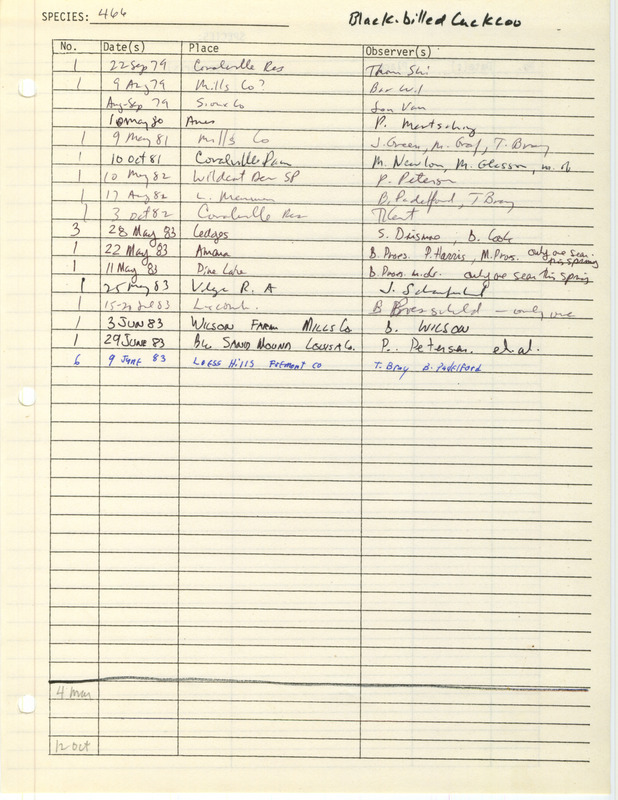 SPECIES: 466 Black-billed Cuckoo
No. Date(s) Place Observer(s)
1 22 Sep 79 Coralville Res
1 9 Aug 79 Mills Co?
Aug-Sep 79 Sioux Co
10 May 80 Ames P. Martsching
1 9 May 81 Mills Co J. Green, M. Graf, T. Bray
1 10 Oct 81 Coralville Dam M. Newlon, M. Glasson, m. ob
1 10 May 82 Wildcat Den SP P. Peterson
1 17 Aug 82 B. Padelford, T Bray
1 3 Oct 82 Coralville Res T Kent
3 28 May 83 Ledges S. Dinsmore, B. Cook
1 22 May 83 Amana B. Proes. P. Harris, M. Proes. only one seen this spring
1 11 May 83 Pine Lake B. Proes. m.ob. only one seen this spring
1 25 May 83 R. A
1 15-29 Jul 83 only one
1 3 JUN 83 WILSON FARM MILLS Co B. WILSON
1 29 JUNE 83 BIG SAND MOUND LOUISA Co. P. Petersen. et.al.
6 9 JUNE 83 LOESS HILLS FREMONT CO T. BRAY B. PADELFORD
4 Mar
12 Oct